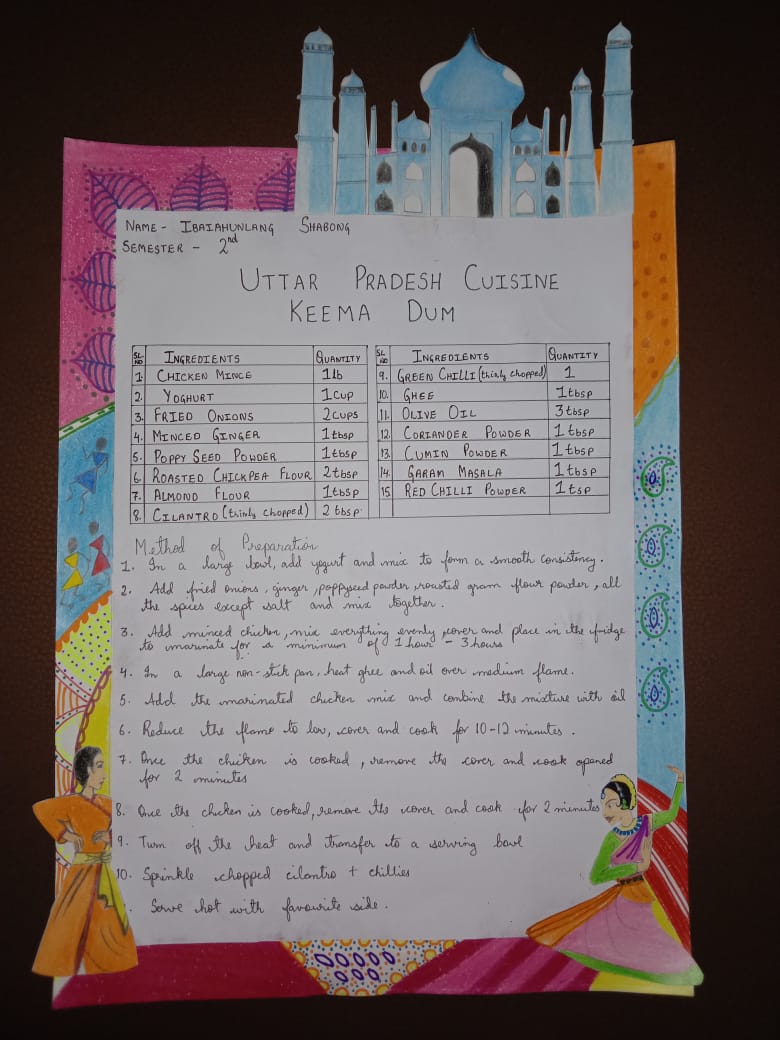 NAME - IBAIAHUNLANG SHABONG
SEMESTER - 2nd
UTTAR PRADESH CUISINE
KEEMA DUM
SL. NO INGREDIENTS QUANTITY
1. CHICKEN MINCE 1lb
2. YOGHURT 1cup
3. FRIED ONIONS 2cups
4. MINCED GINGER 1tbsp
5. POPPY SEED POWDER 1tbsp
6. ROASTED CHICKPEA FLOUR 2tbsp
7. ALMOND FLOUR 1tbsp
8. CILANTRO (thinly chopped) 2 tbsp.
SL. NO INGREDIENTS QUANTITY
9. GREEN CHILLI (thinly chopped) 1
10. GHEE 1tbsp
11. OLIVE OIL 3tbsp
12. CORIANDER POWDER 1 tbsp
13. CUMIN POWDER 1tbsp
14. GARAM MASALA 1tbsp
15. RED CHILLI POWDER 1tsp
Method of Preparation
1. In a large bowl, add yogurt and mix to form a smooth consistency.
2. Add fried onions, ginger, poppyseed powder, roasted gram flour powder, all
the spices except salt and mix together.
3. Add minced chicken, mix everything evenly, cover and place in the fridge
to marinate for a minimum of 1 hour - 3 hours
4. In a large non-stick pan, heat ghee and oil over medium flame.
5. Add the marinated chicken mix and combine the mixture with oil
6. Reduce the flame to low, cover and cook for 10-12 minutes.
7. Once the chicken is cooked, remove the cover and cook opened
for 2 minutes
8. Once the chicken is cooked, remove the cover and cook for 2 minutes
9. Turn off the heat and transfer to a serving bowl
10. Sprinkle chopped cilantro + chillies
Serve hot with favourite side.